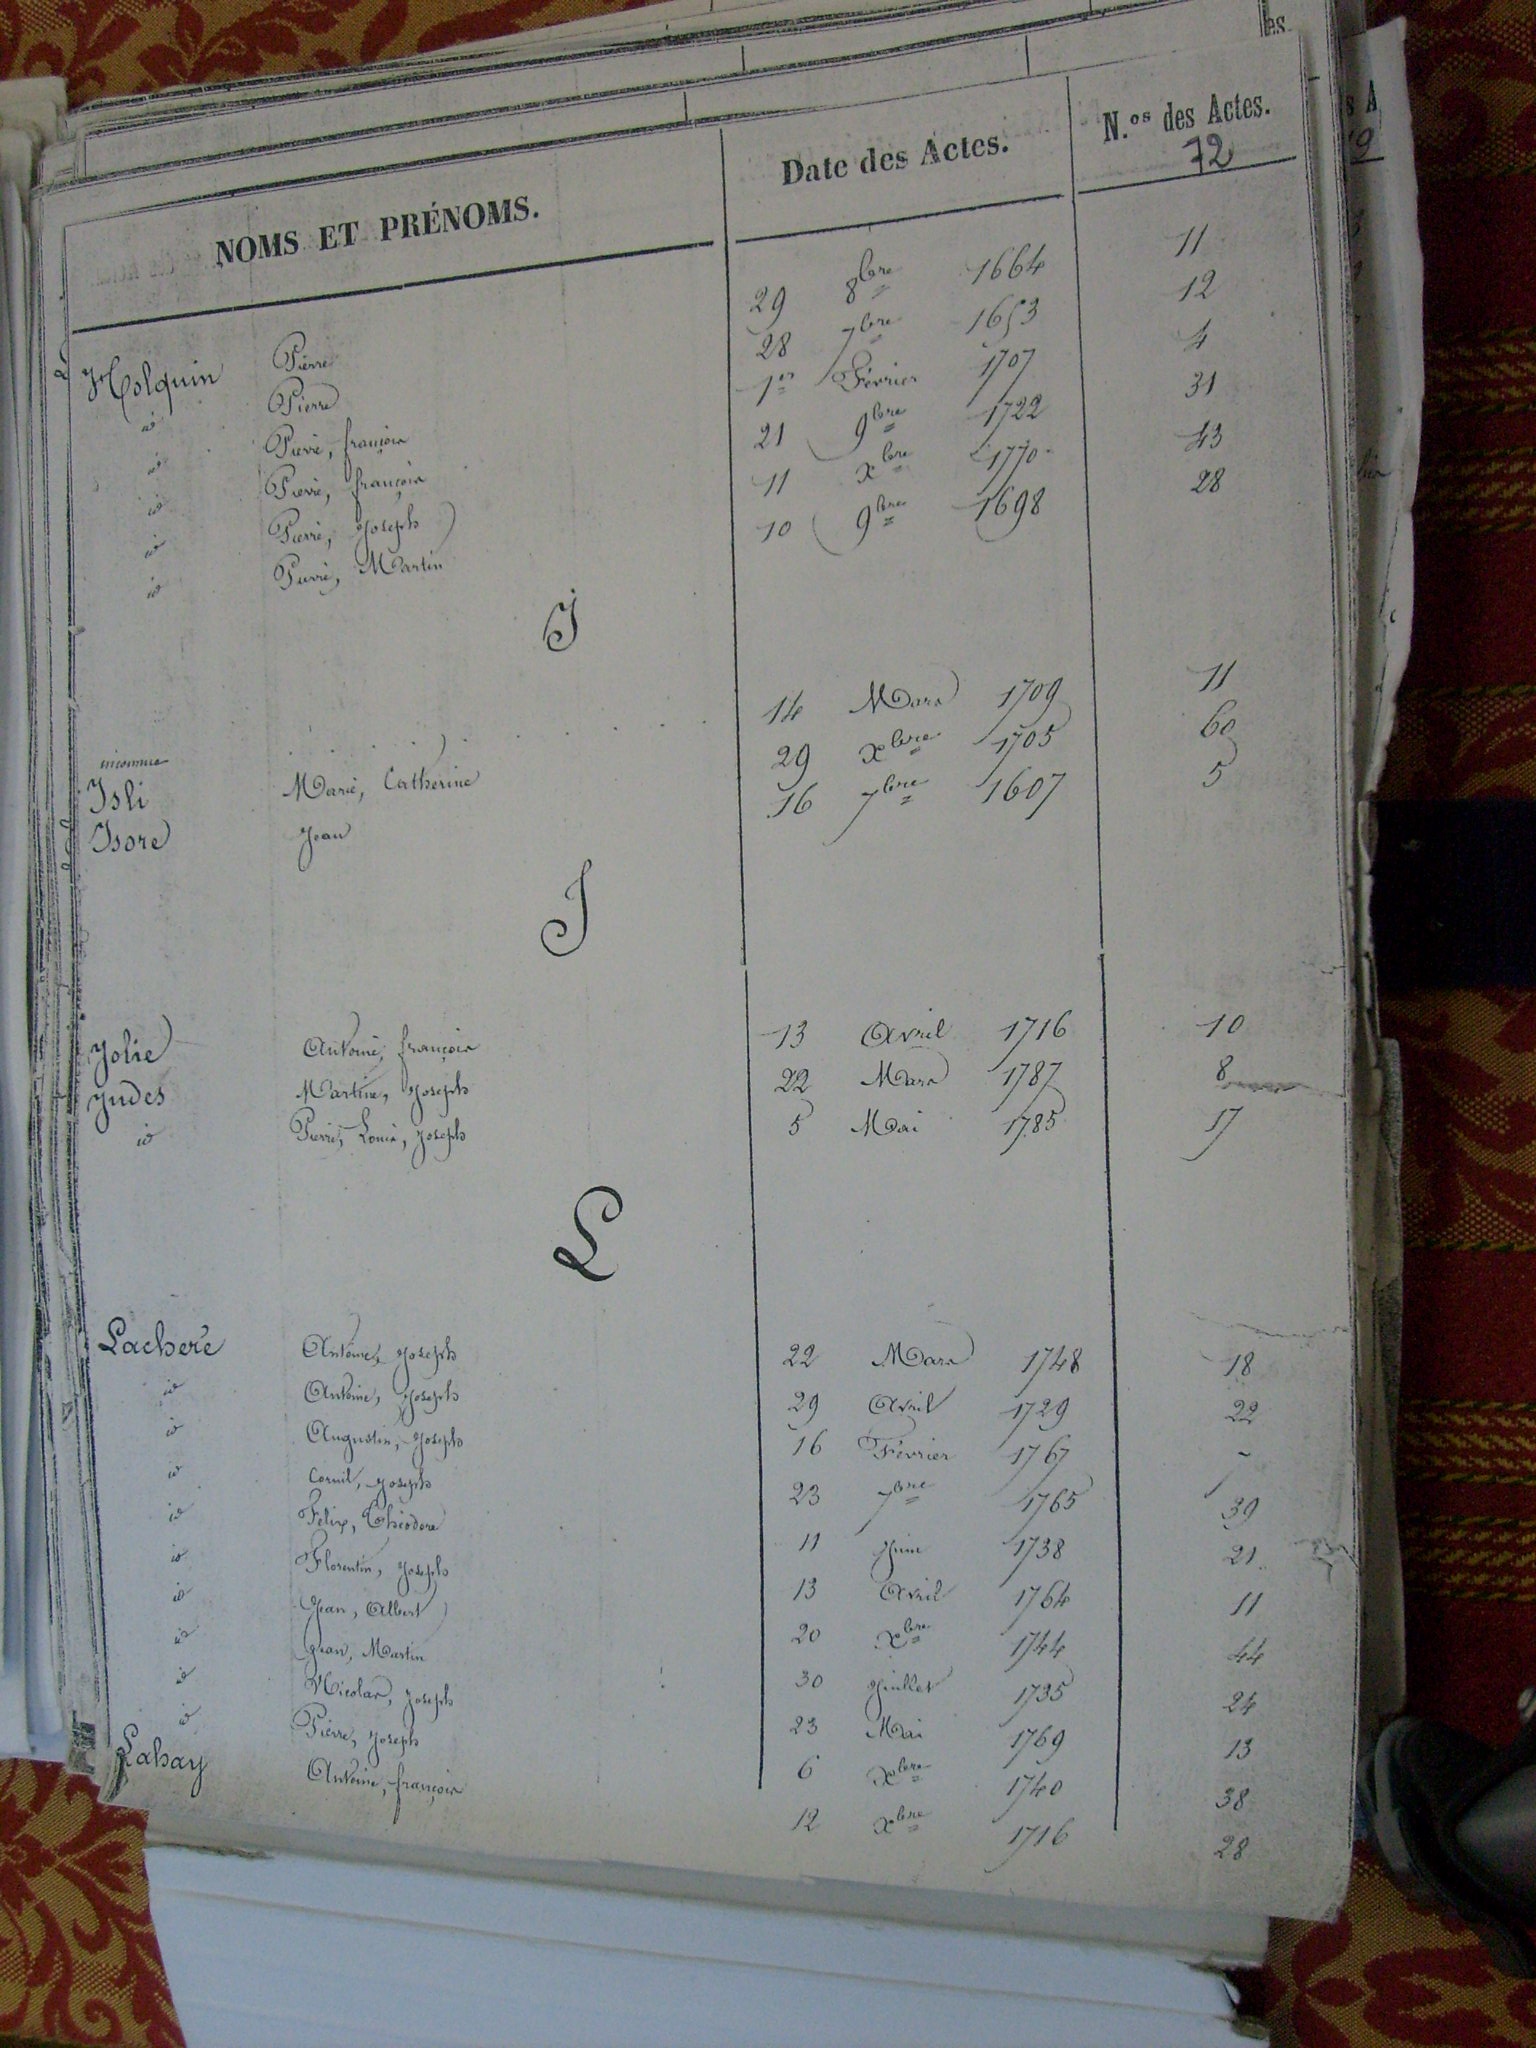 NOMS ET PRÉNOMS. Date des Actes. N.os des Actes.
72
Holquin Pierre 29 8bre 1664 11
id Pierre 28 7bre 1653 12
id Pierre, françois 1er Février 1707 4
id Pierre, françois 21 9bre 1722 31
id Pierre, Joseph 11 xbre 1770 43
id Pierre, Martin 10 9bre 1698 28
I
inconnue 14 Mars 1709 11
Isli Marie, Catherine 29 xbre 1705 60
Isore Jean 16 7bre 1607 5
J
Jolie Antoine, françois 13 Avril 1716 10
Judes Martine, Joseph 22 Mars 1787 8
id Pierre, Louis, Joseph 5 Mai 1785 17
L
Lacheré Antoine, Joseph 22 Mars 1748 18
id Antoine, Joseph 29 Avril 1729 22
id Augustin, Joseph 16 Février 1767 7
id Cornil, Joseph 23 7bre 1765 39
id Félix, Théodore 11 Juin 1738 21
id Florentin, Joseph 13 Avril 1764 11
id Jean, Albert 20 xbre 1744 44
id Jean, Martin 30 Juillet 1735 24
id Nicolas, Joseph 23 Mai 1769 13
id Pierre, Joseph 6 xbre 1740 38
Lahay Antoine, françois 12 xbre 1716 28